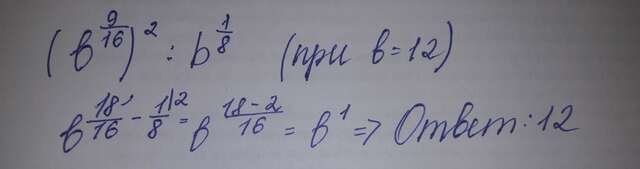 (b^{9/16})^2 : b^{1/8} (при b=12)
b^{18/16 - 1/8|2} = b^{18-2/16} = b^1 => Ответ: 12